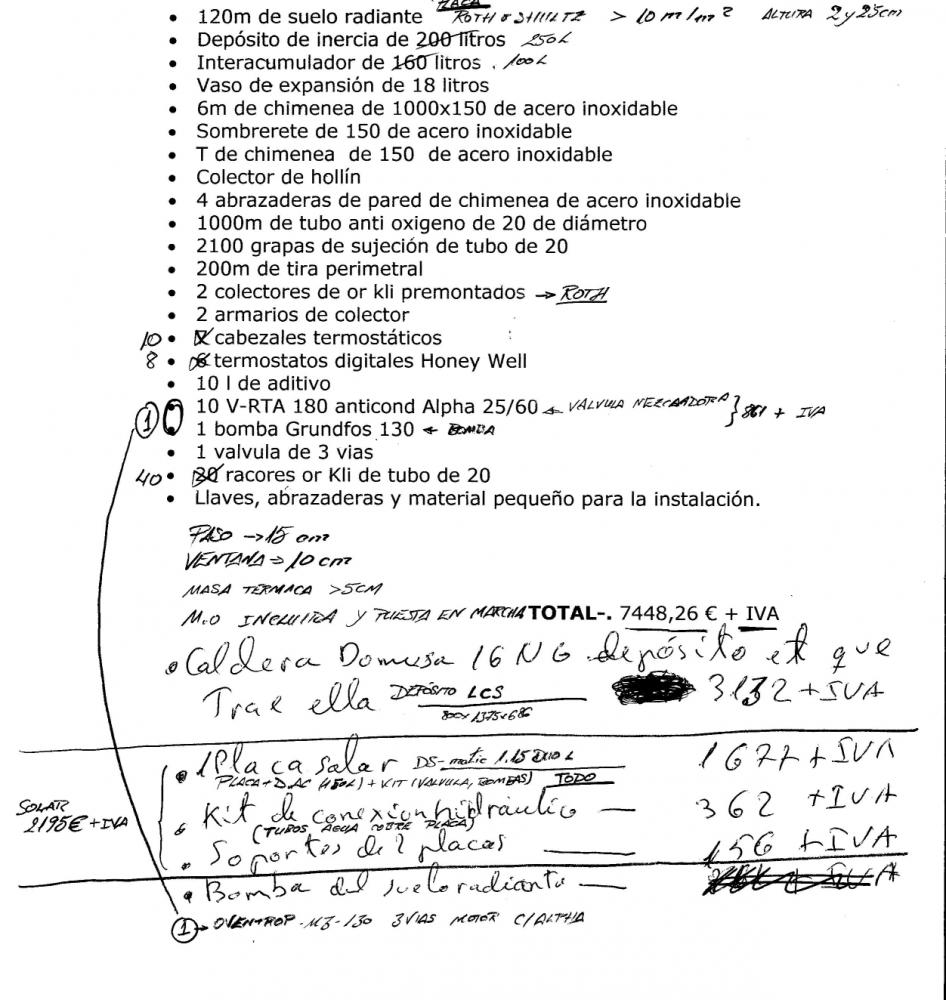 PLACA
• 120m de suelo radiante ROTH o SHULTZ > 10 m/m² ALTURA 2 y 25cm
• Depósito de inercia de 200 litros 250L
• Interacumulador de 160 litros . 100L
• Vaso de expansión de 18 litros
• 6m de chimenea de 1000x150 de acero inoxidable
• Sombrerete de 150 de acero inoxidable
• T de chimenea de 150 de acero inoxidable
• Colector de hollín
• 4 abrazaderas de pared de chimenea de acero inoxidable
• 1000m de tubo anti oxigeno de 20 de diámetro
• 2100 grapas de sujeción de tubo de 20
• 200m de tira perimetral
• 2 colectores de or kli premontados → ROTH
• 2 armarios de colector
10 • 7 cabezales termostáticos
8 • 6 termostatos digitales Honey Well
• 10 l de aditivo
① • 10 V-RTA 180 anticond Alpha 25/60 ← VALVULA MEZCLADORA } 861 + IVA
• 1 bomba Grundfos 130 ← BOMBA
• 1 valvula de 3 vias
40 • 20 racores or Kli de tubo de 20
• Llaves, abrazaderas y material pequeño para la instalación.
PASO → 15 cm
VENTANA → 10 cm
MASA TERMACA >5CM
M.O INCLUIDA Y PUESTA EN MARCHA TOTAL-. 7448,26 € + IVA
• Caldera Domusa 16 NG depósito el que
Trae ella DEPÓSITO LCS 3132 + IVA
800x1375x686
• 1 Placa Solar DS-matic 1.15 1677 + IVA
PLACA + D.AC (150L) + KIT (VALVULA, BOMBAS) TODO
SOLAR
2195€ + IVA
• Kit de conexion hidraulico — 362 + IVA
(TUBOS AGUA PLACA)
• Soportes de 2 placas — 156 + IVA
• Bomba del suelo radiante — + IVA
① → OVENTROP M3-130 3VIAS MOTOR C/ALPHA